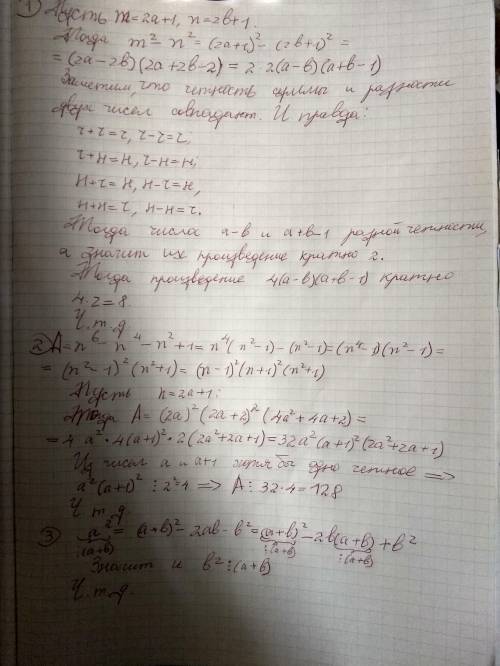 1) Пусть m=2a+1, n=2b+1.
Тогда m² - n² = (2a+1)² - (2b+1)² =
= (2a-2b)(2a+2b-2) = 2·2(a-b)(a+b-1)
Заметим, что четность суммы и разности
двух чисел совпадают. И правда:
ч+ч=ч, ч-ч=ч;
ч+н=н, ч-н=н;
н+ч=н, н-ч=н,
н+н=ч, н-н=ч.
Тогда числа a-b и a+b-1 разной четности,
а значит их произведение кратно 2.
Тогда произведение 4(a-b)(a+b-1) кратно
4·2=8.
Ч.т.д
2) A=n⁶-n⁴-n²+1=n⁴(n²-1)-(n²-1)=(n⁴-1)(n²-1)=
= (n²-1)²(n²+1) = (n-1)²(n+1)²(n²+1)
Пусть n=2a+1;
Тогда A=(2a)²(2a+2)²(4a²+4a+2)=
=4a²·4(a+1)²·2(2a²+2a+1)=32a²(a+1)²(2a²+2a+1)
Из чисел a и a+1 хотя бы одно четное =>
a²(a+1)²⋮2²=4 => A⋮32·4=128
Ч.т.д.
3) a² = (a+b)²-2ab-b²=(a+b)²-2b(a+b)+b²
⋮(a+b) ⋮(a+b) ⋮(a+b)
Значит и b²⋮(a+b)
Ч.т.д.